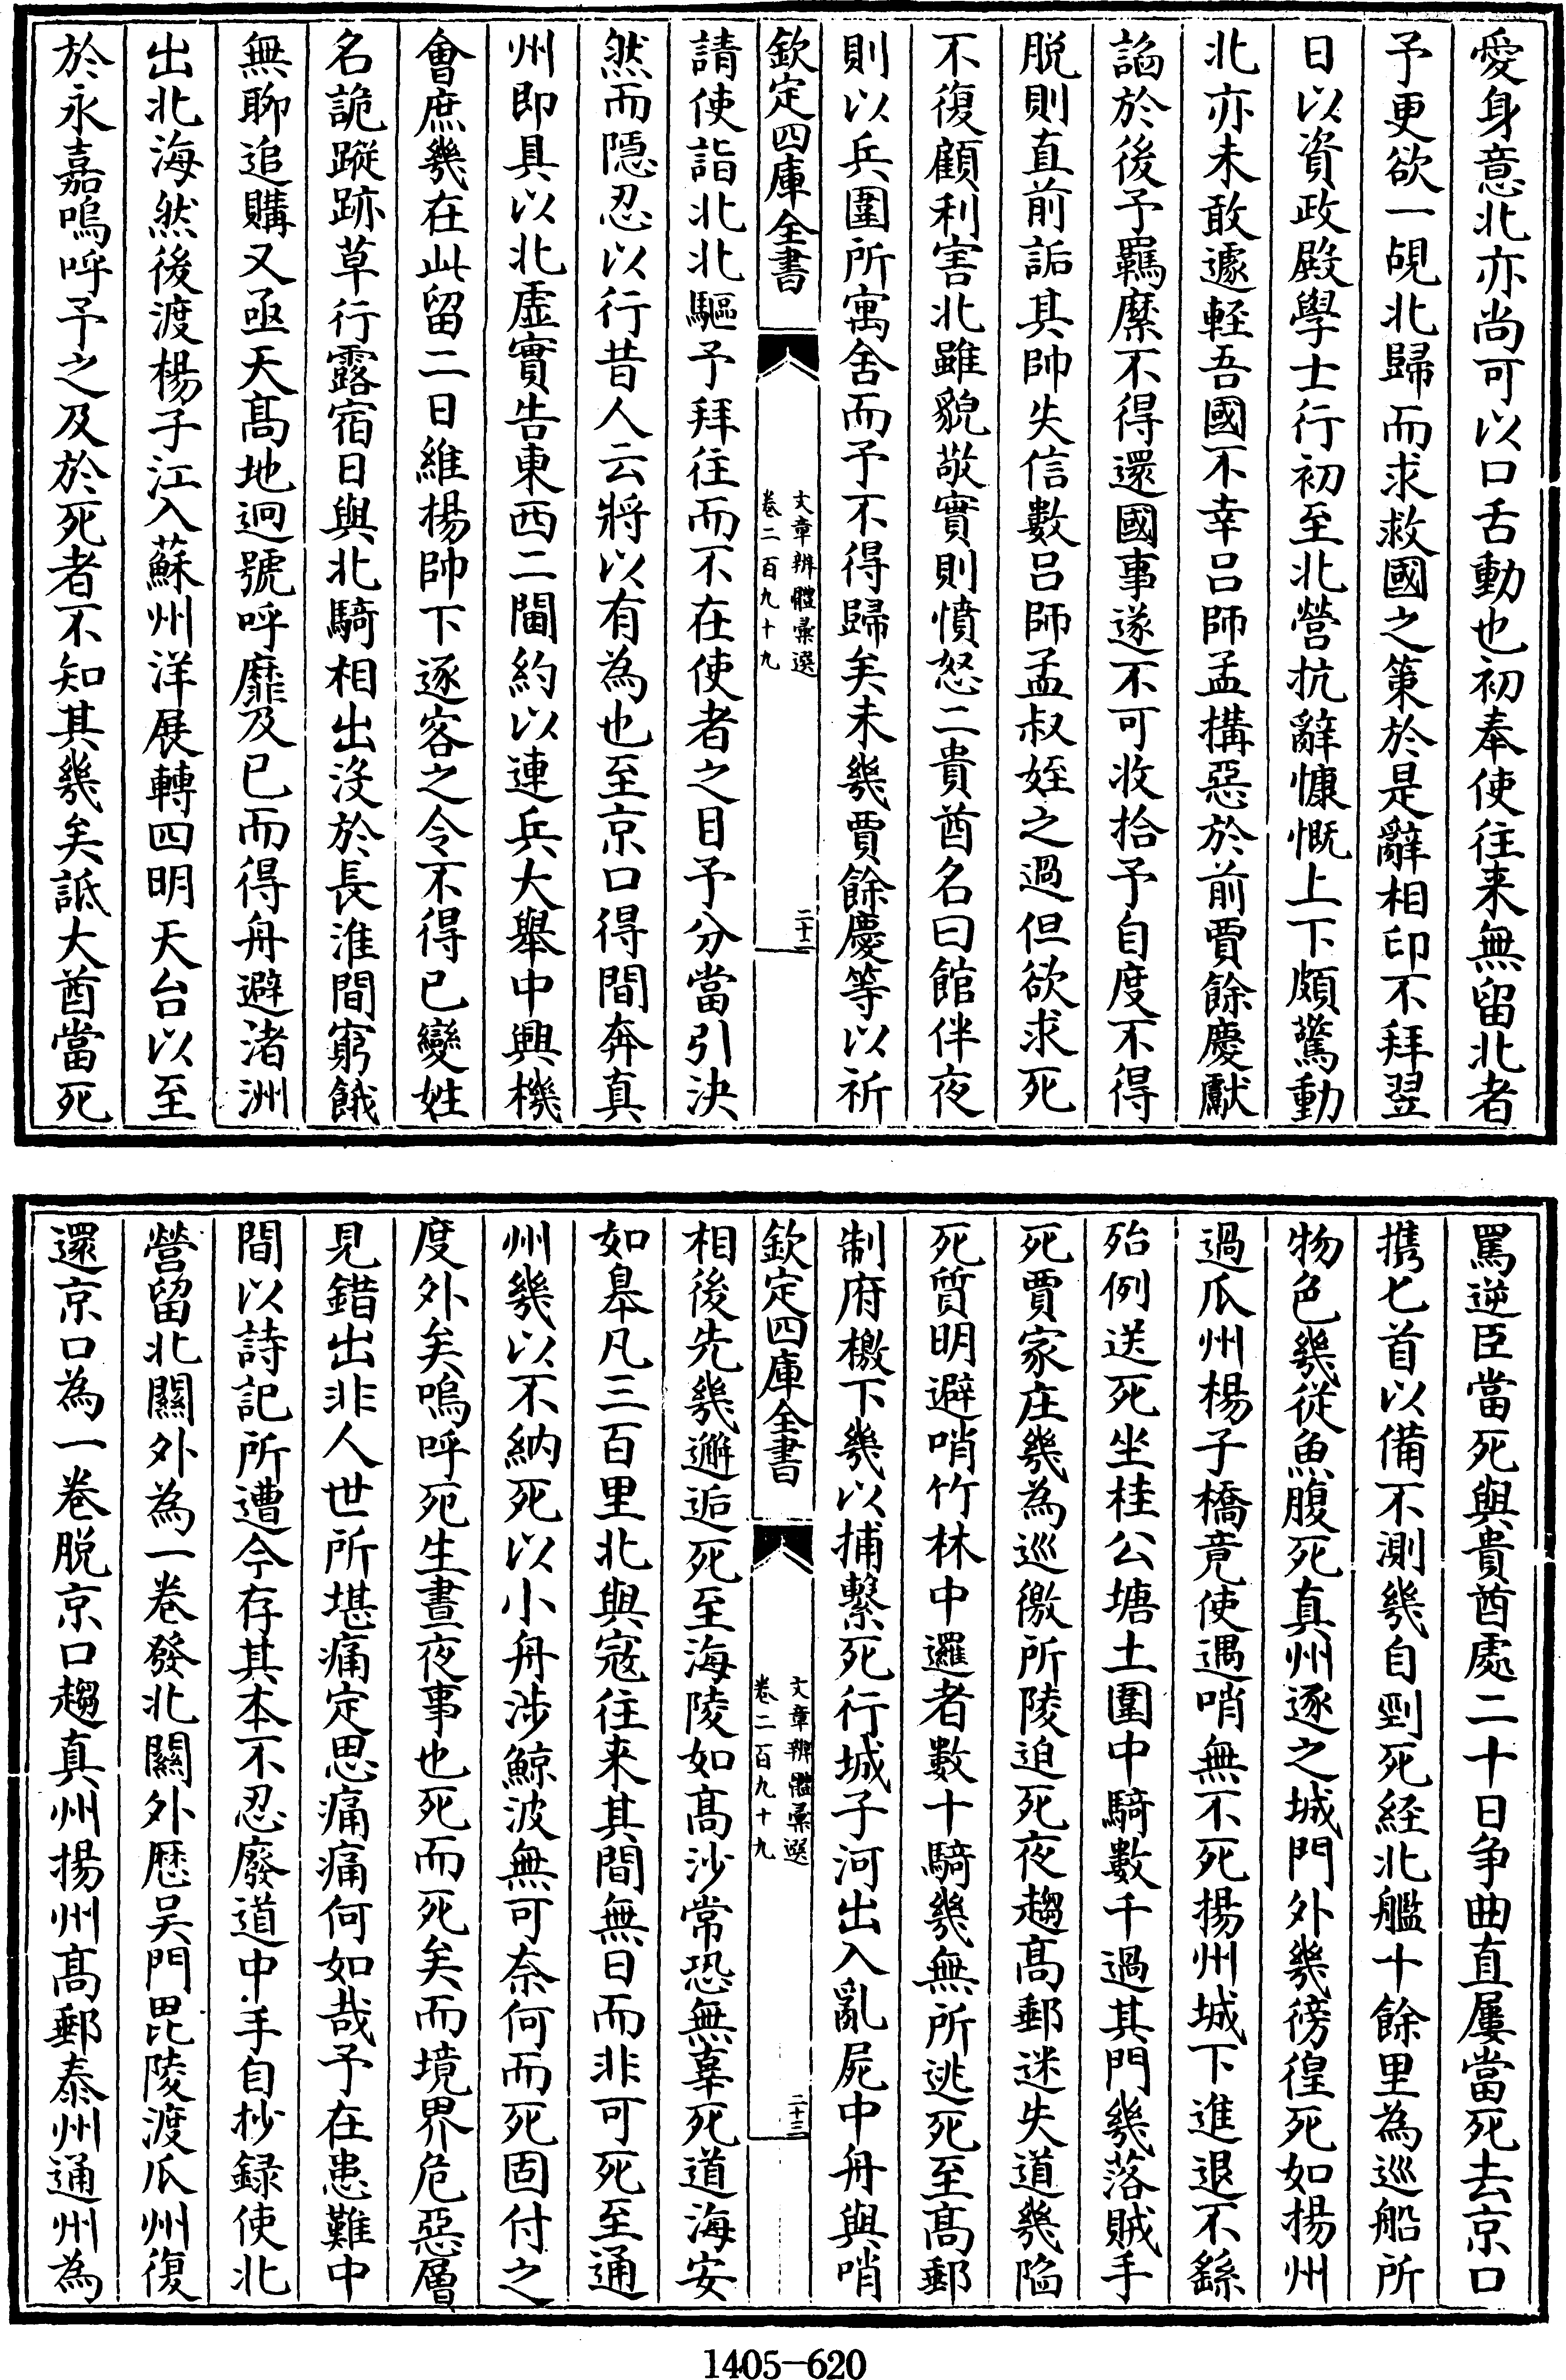 愛身意北亦尚可以口舌動也初奉使往来無留北者
予更欲一覘北歸而求救國之策於是辭相印不拜翌
日以資政殿學士行初至北營抗辭慷慨上下頗驚動
北亦未敢遽軽吾國不幸吕師孟構惡於前賈餘慶獻
諂於後予羈縻不得還國事遂不可收拾予自度不得
脱則直前詬其帥失信數吕師孟叔姪之過但欲求死
不復顧利害北雖貌敬實則憤怒二貴酋名曰館伴夜
則以兵圍所寓舍而予不得歸矣未幾賈餘慶等以祈
欽定四庫全書
文章辨體彚選
卷二百九十九
二十二
請使詣北北驅予拜往而不在使者之目予分當引决
然而隠忍以行昔人云將以有為也至京口得間奔真
州即具以北虛實告東西二閫約以連兵大舉中興機
會庶幾在此留二日維楊帥下逐客之令不得已變姓
名詭蹤跡草行露宿日與北騎相出沒於長淮間窮餓
無聊追購又亟天髙地迥號呼靡及已而得舟避渚洲
出北海然後渡楊子江入蘇州洋展轉四明天台以至
於永嘉嗚呼予之及於死者不知其幾矣詆大酋當死
罵逆臣當死與貴酋處二十日争曲直屢當死去京口
携匕首以備不測幾自剄死経北艦十餘里為巡船所
物色幾從魚腹死真州逐之城門外幾徬徨死如揚州
過瓜州楊子橋竟使遇哨無不死揚州城下進退不繇
殆例送死坐桂公塘土圍中騎數千過其門幾落賊手
死賈家庄幾為巡徼所陵迫死夜趨髙郵迷失道幾陷
死質明避哨竹林中邏者數十騎幾無所逃死至髙郵
制府檄下幾以捕繫死行城子河出入亂屍中舟與哨
欽定四庫全書
文章辨體彚選
卷二百九十九
二十三
相後先幾邂逅死至海陵如髙沙常恐無辜死道海安
如皋凡三百里北與寇往来其間無日而非可死至通
州幾以不納死以小舟涉鯨波無可奈何而死固付之
度外矣嗚呼死生晝夜事也死而死矣而境界危惡層
見錯出非人世所堪痛定思痛痛何如哉予在患難中
間以詩記所遭今存其本不忍廢道中手自抄録使北
營留北關外為一卷發北關外厯吴門毘陵渡瓜州復
還京口為一卷脱京口趨真州揚州髙郵泰州通州為
1405-620